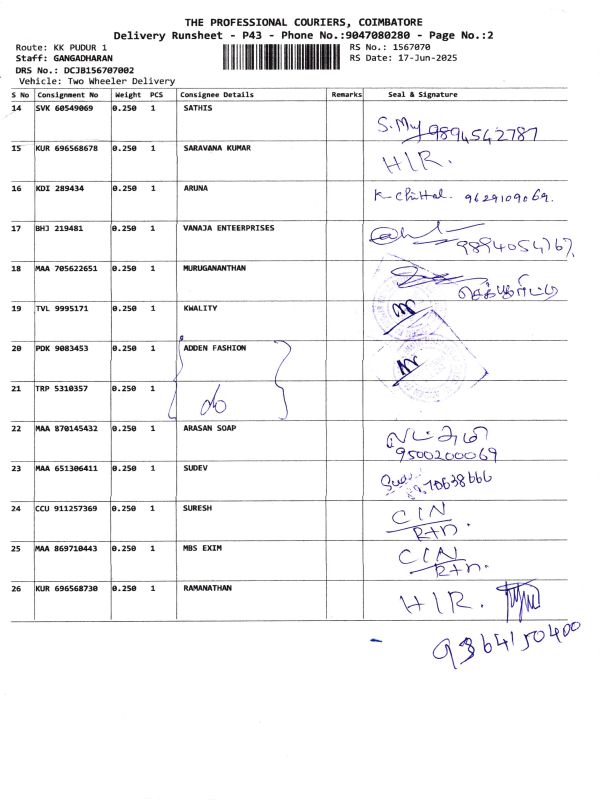 THE PROFESSIONAL COURIERS, COIMBATORE
Delivery Runsheet - P43 - Phone No.:9047080280 - Page No.:2
Route: KK PUDUR 1
RS No.: 1567070
Staff: GANGADHARAN
RS Date: 17-Jun-2025
DRS No.: DCJB156707002
Vehicle: Two Wheeler Delivery
S No Consignment No Weight PCS Consignee Details Remarks Seal & Signature
14 SVK 60549069 0.250 1 SATHIS
9894542787
15 KUR 696568678 0.250 1 SARAVANA KUMAR H/R.
16 KDI 289434 0.250 1 ARUNA K. Chittal. 9629109069.
17 BHJ 219481 0.250 1 VANAJA ENTEERPRISES
18 MAA 705622651 0.250 1 MURUGANANTHAN
19 TVL 9995171 0.250 1 KWALITY
20 PDK 9083453 0.250 1 ADDEN FASHION
21 TRP 5310357 0.250 1
22 MAA 870145432 0.250 1 ARASAN SOAP
9500200069
23 MAA 651306411 0.250 1 SUDEV
24 CCU 911257369 0.250 1 SURESH C/N
Rtn.
25 MAA 869710443 0.250 1 MBS EXIM C/N
Rtn.
26 KUR 696568730 0.250 1 RAMANATHAN H/R.
9364150400